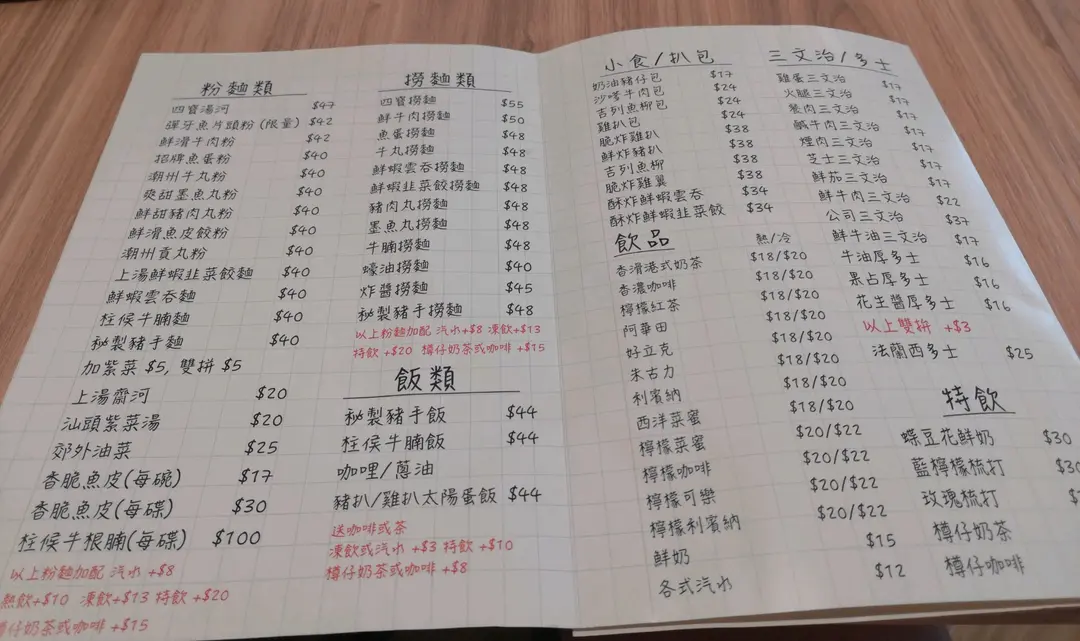 粉麵類
四寶湯河 $47
彈牙魚片頭粉(限量) $42
鮮滑牛肉粉 $42
招牌魚蛋粉 $40
潮州牛丸粉 $40
爽甜墨魚丸粉 $40
鮮甜豬肉丸粉 $40
鮮滑魚皮餃粉 $40
潮州貢丸粉 $40
上湯鮮蝦韭菜餃麵 $40
鮮蝦雲吞麵 $40
柱侯牛腩麵 $40
秘製豬手麵 $40
加紫菜 $5, 雙拼 $5
上湯齋河 $20
汕頭紫菜湯 $20
郊外油菜 $25
香脆魚皮(每碗) $17
香脆魚皮(每碟) $30
柱侯牛根腩(每碟) $100
以上粉麵加配 汽水 +$8
熱飲+$10 凍飲+$13 特飲 +$20
樽仔奶茶或咖啡 +$15
撈麵類
四寶撈麵 $55
鮮牛肉撈麵 $50
魚蛋撈麵 $48
牛丸撈麵 $48
鮮蝦雲吞撈麵 $48
鮮蝦韭菜餃撈麵 $48
豬肉丸撈麵 $48
墨魚丸撈麵 $48
牛腩撈麵 $48
蠔油撈麵 $40
炸醬撈麵 $45
秘製豬手撈麵 $48
以上粉麵加配 汽水+$8 凍飲+$13
特飲 +$20 樽仔奶茶或咖啡 +$15
飯類
秘製豬手飯 $44
柱侯牛腩飯 $44
咖哩/蔥油
豬扒/雞扒太陽蛋飯 $44
送咖啡或茶
凍飲或汽水 +$3 特飲 +$10
樽仔奶茶或咖啡 +$8
小食/扒包
奶油豬仔包 $17
沙嗲牛肉包 $24
吉列魚柳包 $24
雞扒包 $24
脆炸雞扒 $38
鮮炸豬扒 $38
吉列魚柳 $38
脆炸雞翼 $38
酥炸鮮蝦雲吞 $34
酥炸鮮蝦韭菜餃 $34
飲品 熱/冷
香滑港式奶茶 $18/$20
香濃咖啡 $18/$20
檸檬紅茶 $18/$20
阿華田 $18/$20
好立克 $18/$20
朱古力 $18/$20
利賓納 $18/$20
西洋菜蜜 $18/$20
檸檬菜蜜 $20/$22
檸檬咖啡 $20/$22
檸檬可樂 $20/$22
檸檬利賓納 $20/$22
鮮奶 $15
各式汽水 $12
三文治/多士
雞蛋三文治 $17
火腿三文治 $17
餐肉三文治 $17
鹹牛肉三文治 $17
煙肉三文治 $17
芝士三文治 $17
鮮茄三文治 $17
鮮牛肉三文治 $22
公司三文治 $37
鮮牛油三文治 $17
牛油厚多士 $16
果占厚多士 $16
花生醬厚多士 $16
以上雙拼 +$3
法蘭西多士 $25
特飲
蝶豆花鮮奶 $30
藍檸檬梳打 $30
玫瑰梳打
樽仔奶茶
樽仔咖啡